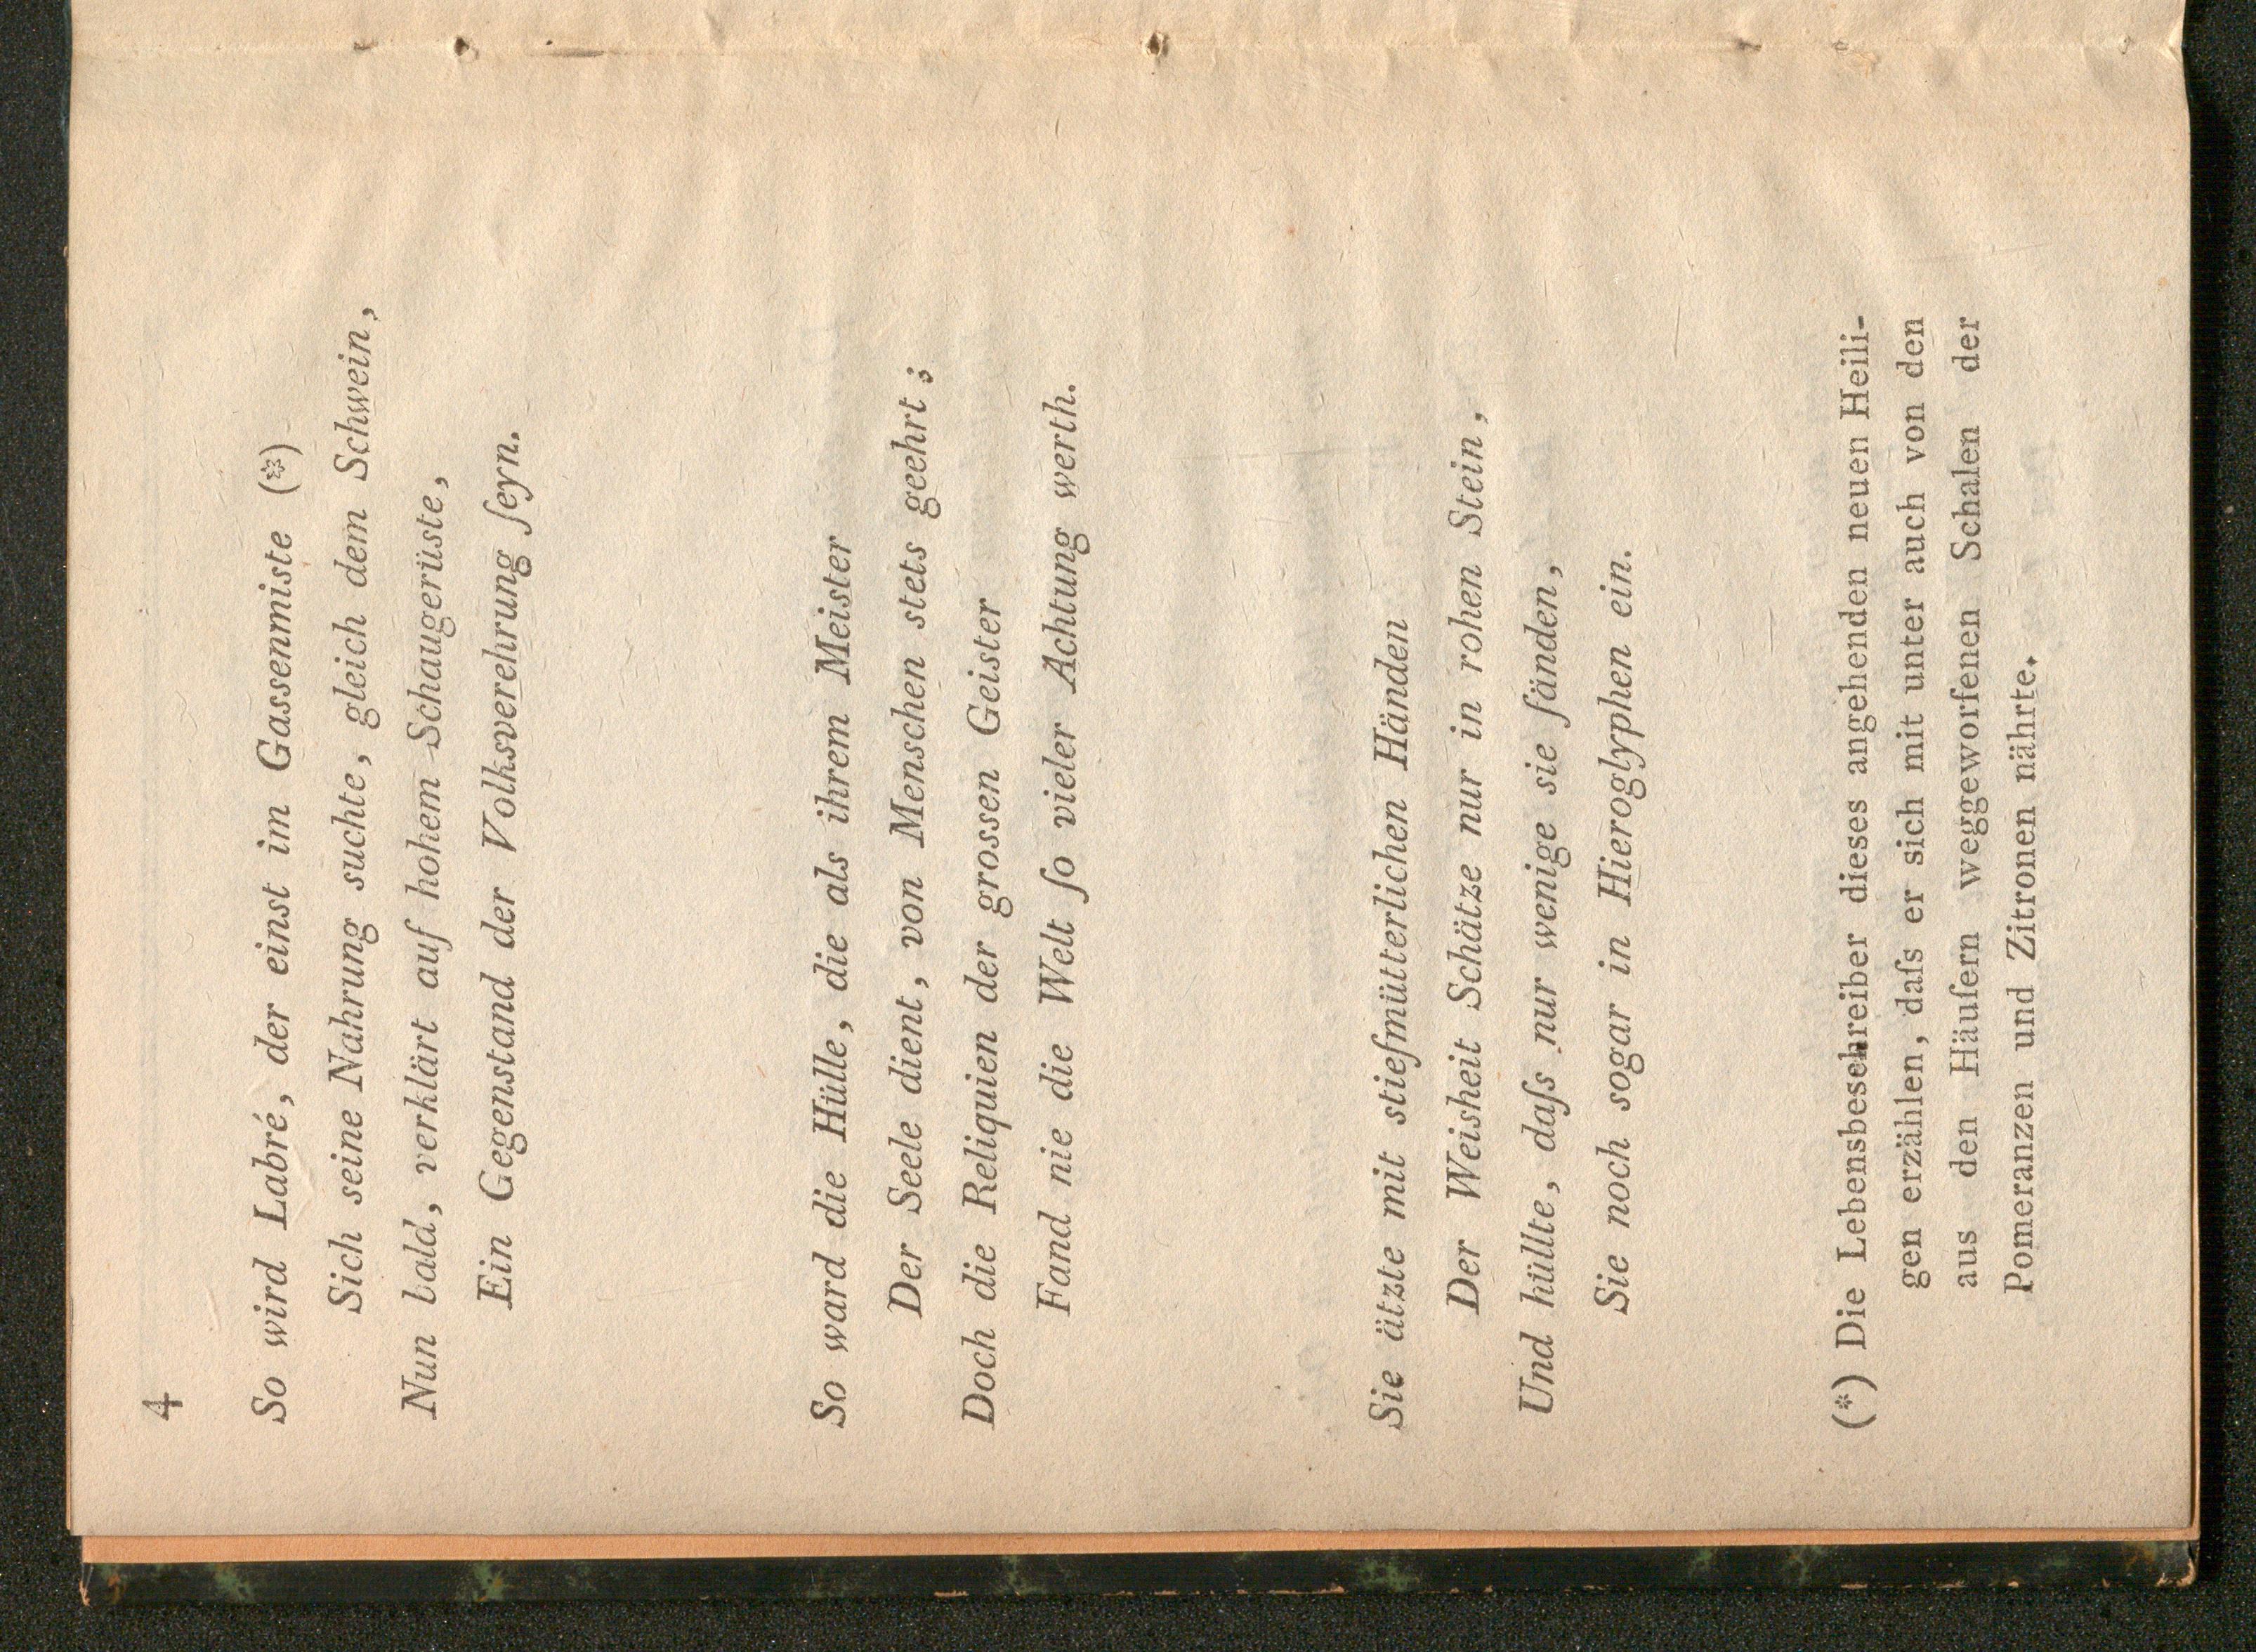 4
So wird Labré, der einst im Gassenmiste (*)
Sich seine Nahrung suchte, gleich dem Schwein,
Nun bald, verklärt auf hohem Schaugerüste,
Ein Gegenstand der Volksverehrung ſeyn.
So ward die Hülle, die als ihrem Meister
Der Seele dient, von Menschen stets geehrt;
Doch die Reliquien der grossen Geister
Fand nie die Welt ſo vieler Achtung werth.
Sie ätzte mit stiefmütterlichen Händen
Der Weisheit Schätze nur in rohen Stein,
Und hüllte, daſs nur wenige sie fänden,
Sie noch sogar in Hieroglyphen ein.
(*) Die Lebensbeschreiber dieses angehenden neuen Heili-
gen erzählen, daſs er sich mit unter auch von den
aus den Häuſern weggeworfenen Schalen der
Pomeranzen und Zitronen nährte.